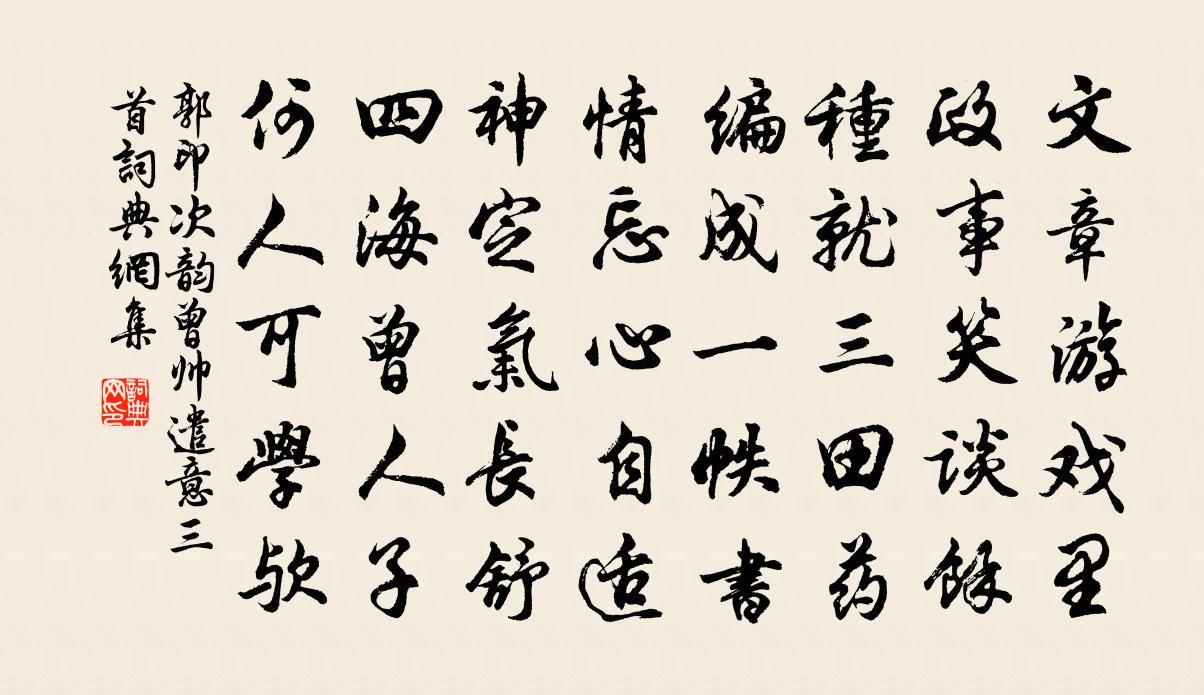 文章游戏里
政事笑谈餘
種就三田药
编成一帙書
情忘心自适
神定氣長舒
四海曾人子
何人可學欤
郭印次韵曾帅遣意三
首詞典網集
詞典
网印